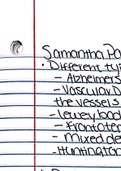 Samantha Pa
• Different ty
- Alzheimers
- Vascular D
the vessels
- Lewy bod
- Frontotem
- Mixed de
- Huntington